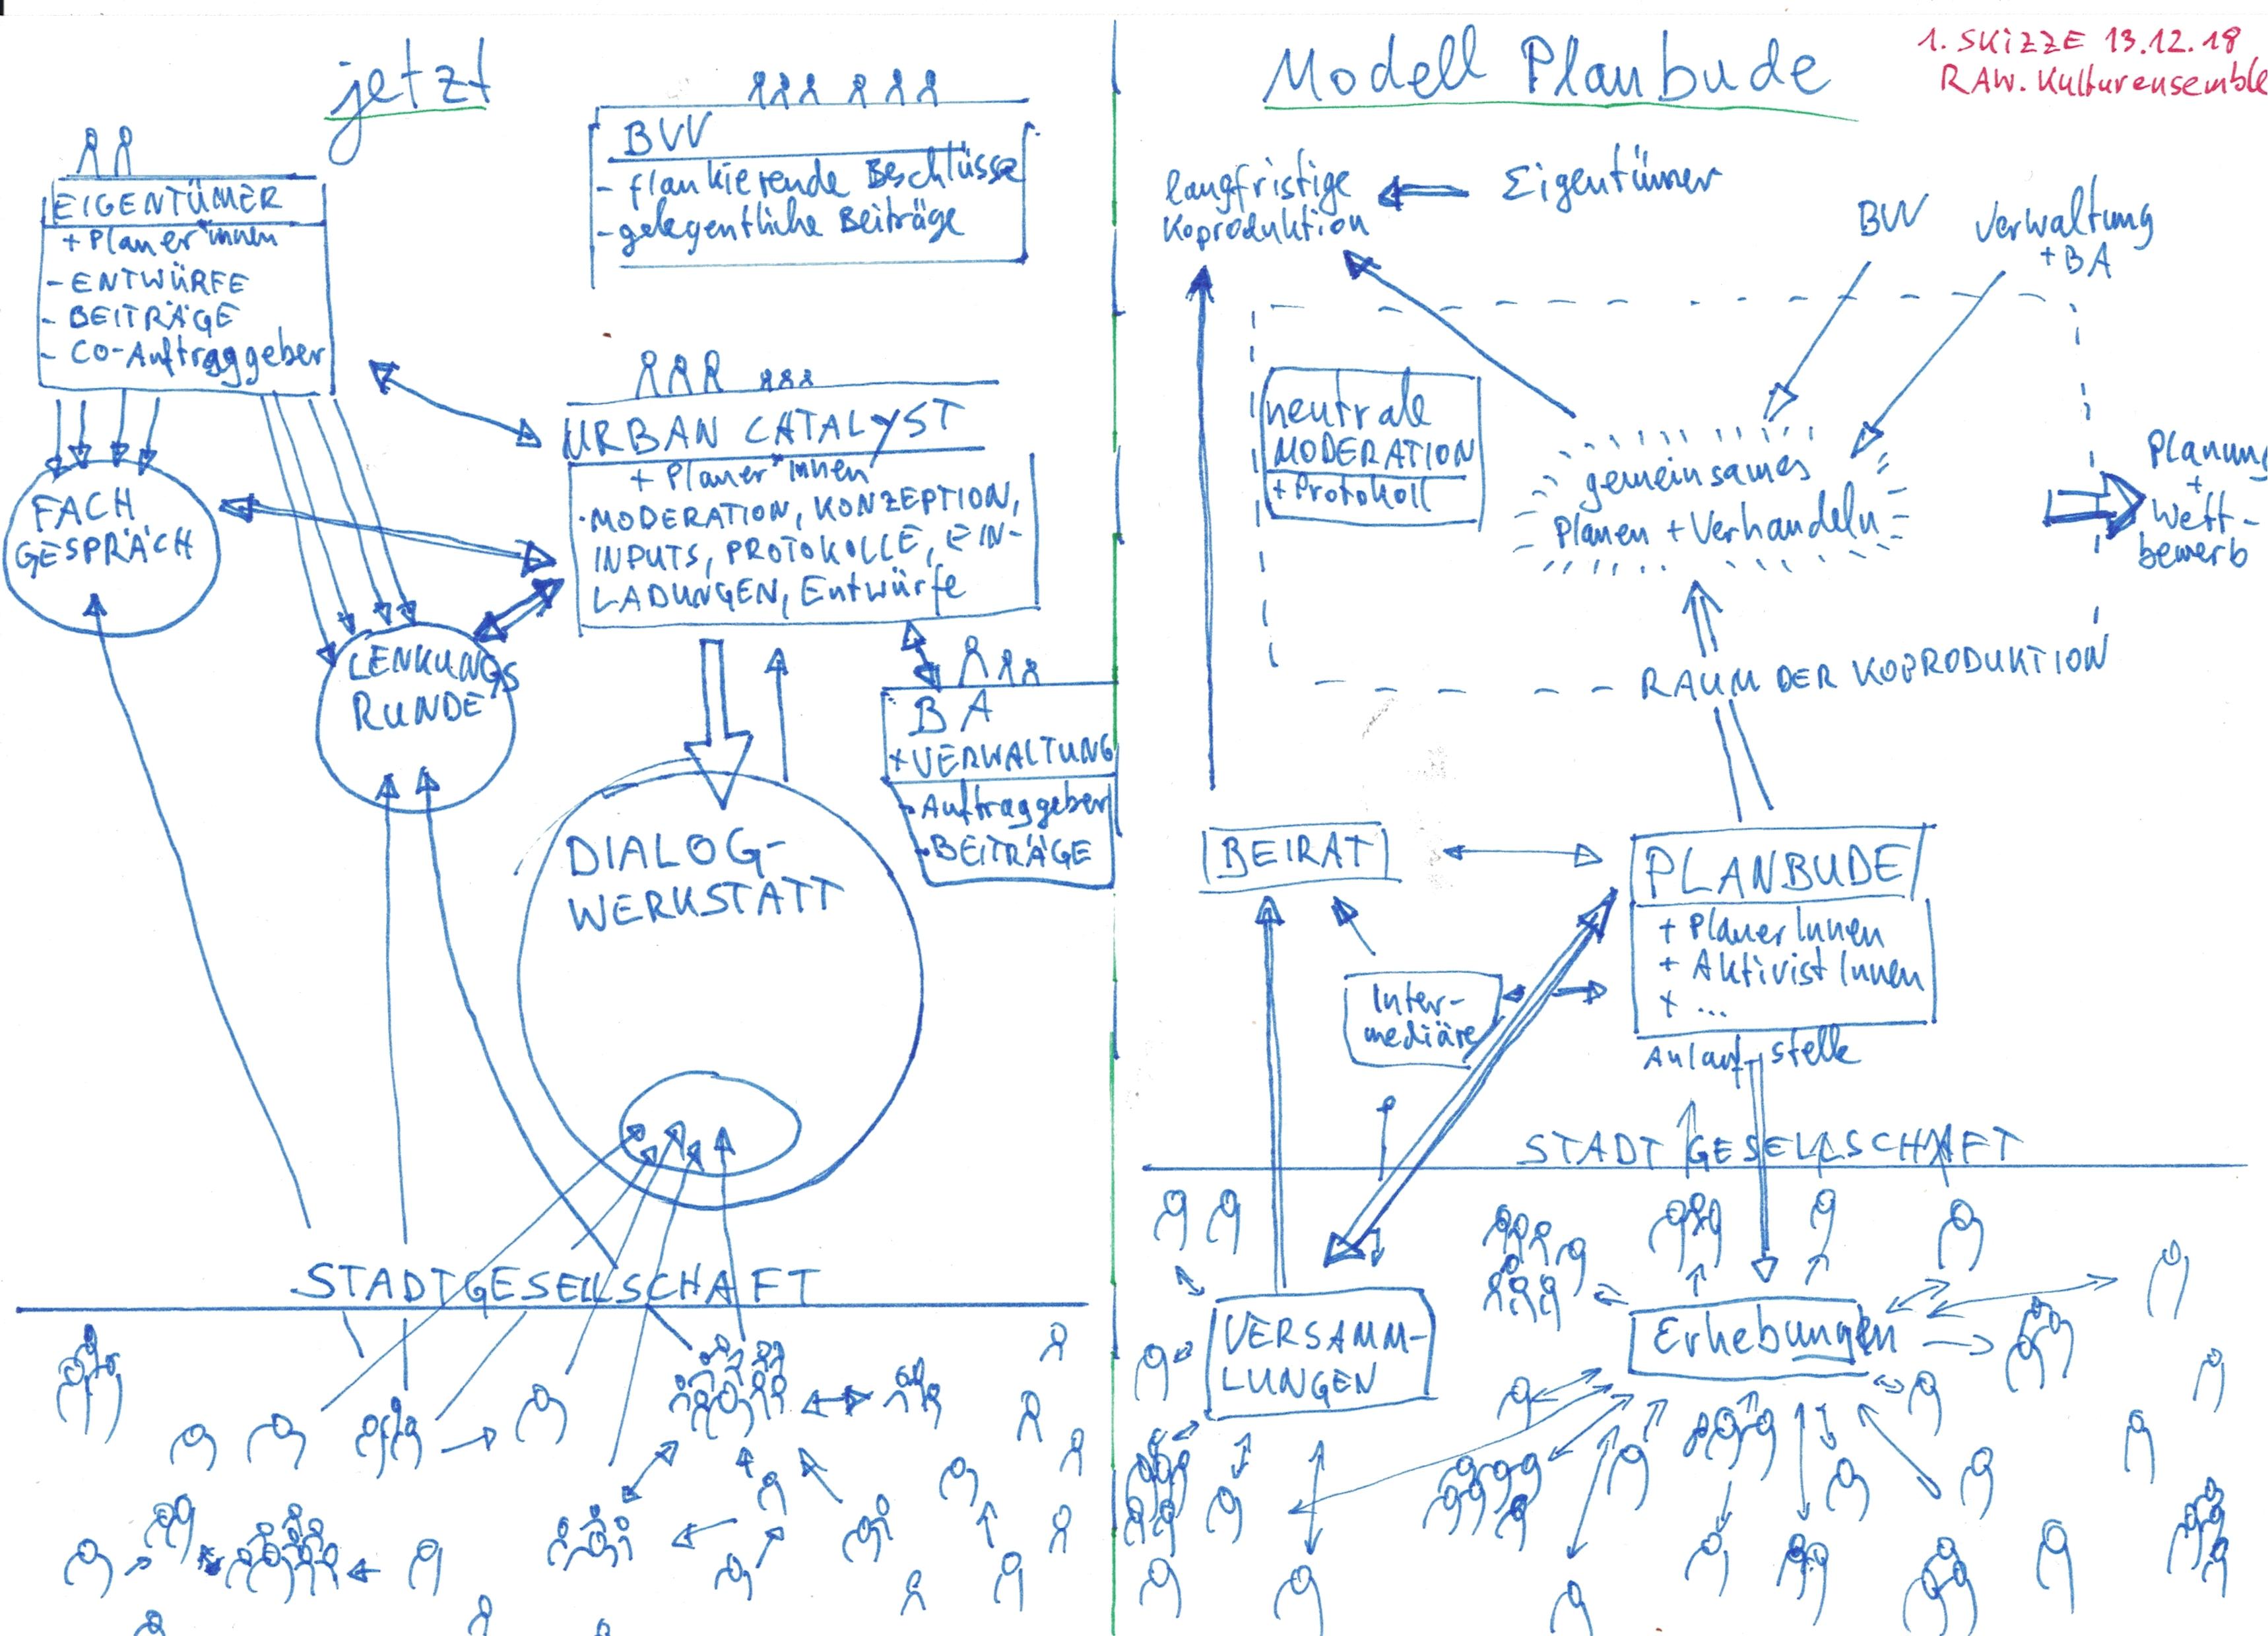 jetzt
BVV
- flankierende Beschlüsse
- gelegentliche Beiträge
EIGENTÜMER
+ Planer*innen
- ENTWÜRFE
- BEITRÄGE
- CO-Auftraggeber
URBAN CATALYST
+ Planer*innen
· MODERATION, KONZEPTION,
INPUTS, PROTOKOLLE, EIN-
LADUNGEN, Entwürfe
FACH
GESPRÄCH
LENKUNGS
RUNDE
BA
+ VERWALTUNG
- Auftraggeber
- BEITRÄGE
DIALOG-
WERKSTATT
STADTGESELLSCHAFT
Modell Planbude
1. SKIZZE 13.12.18
RAW. Kulturensemble
langfristige
Koproduktion
Eigentümer
BVV
Verwaltung
+ BA
neutrale
MODERATION
+ Protokoll
gemeinsames
Planen + Verhandeln
Planung
+
Wett-
bewerb
RAUM DER KOPRODUKTION
BEIRAT
PLANBUDE
+ PlanerInnen
+ AktivistInnen
+ ...
Anlaufstelle
Inter-
mediäre
STADTGESELLSCHAFT
VERSAMM-
LUNGEN
Erhebungen